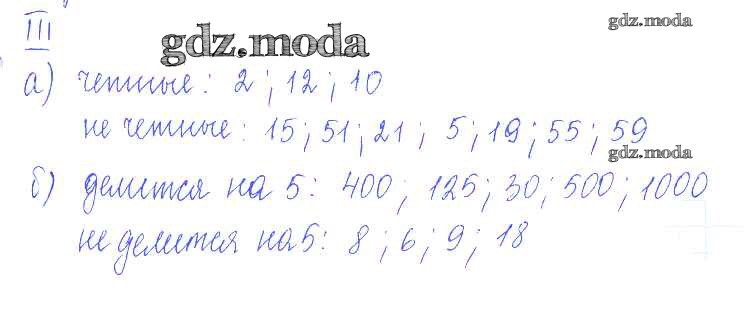 III
gdz.moda
gdz.moda
а) четные: 2; 12; 10
не четные: 15; 51; 21; 5; 19; 55; 59
gdz.moda
б) делится на 5: 400; 125; 30; 500; 1000
не делится на 5: 8; 6; 9; 18